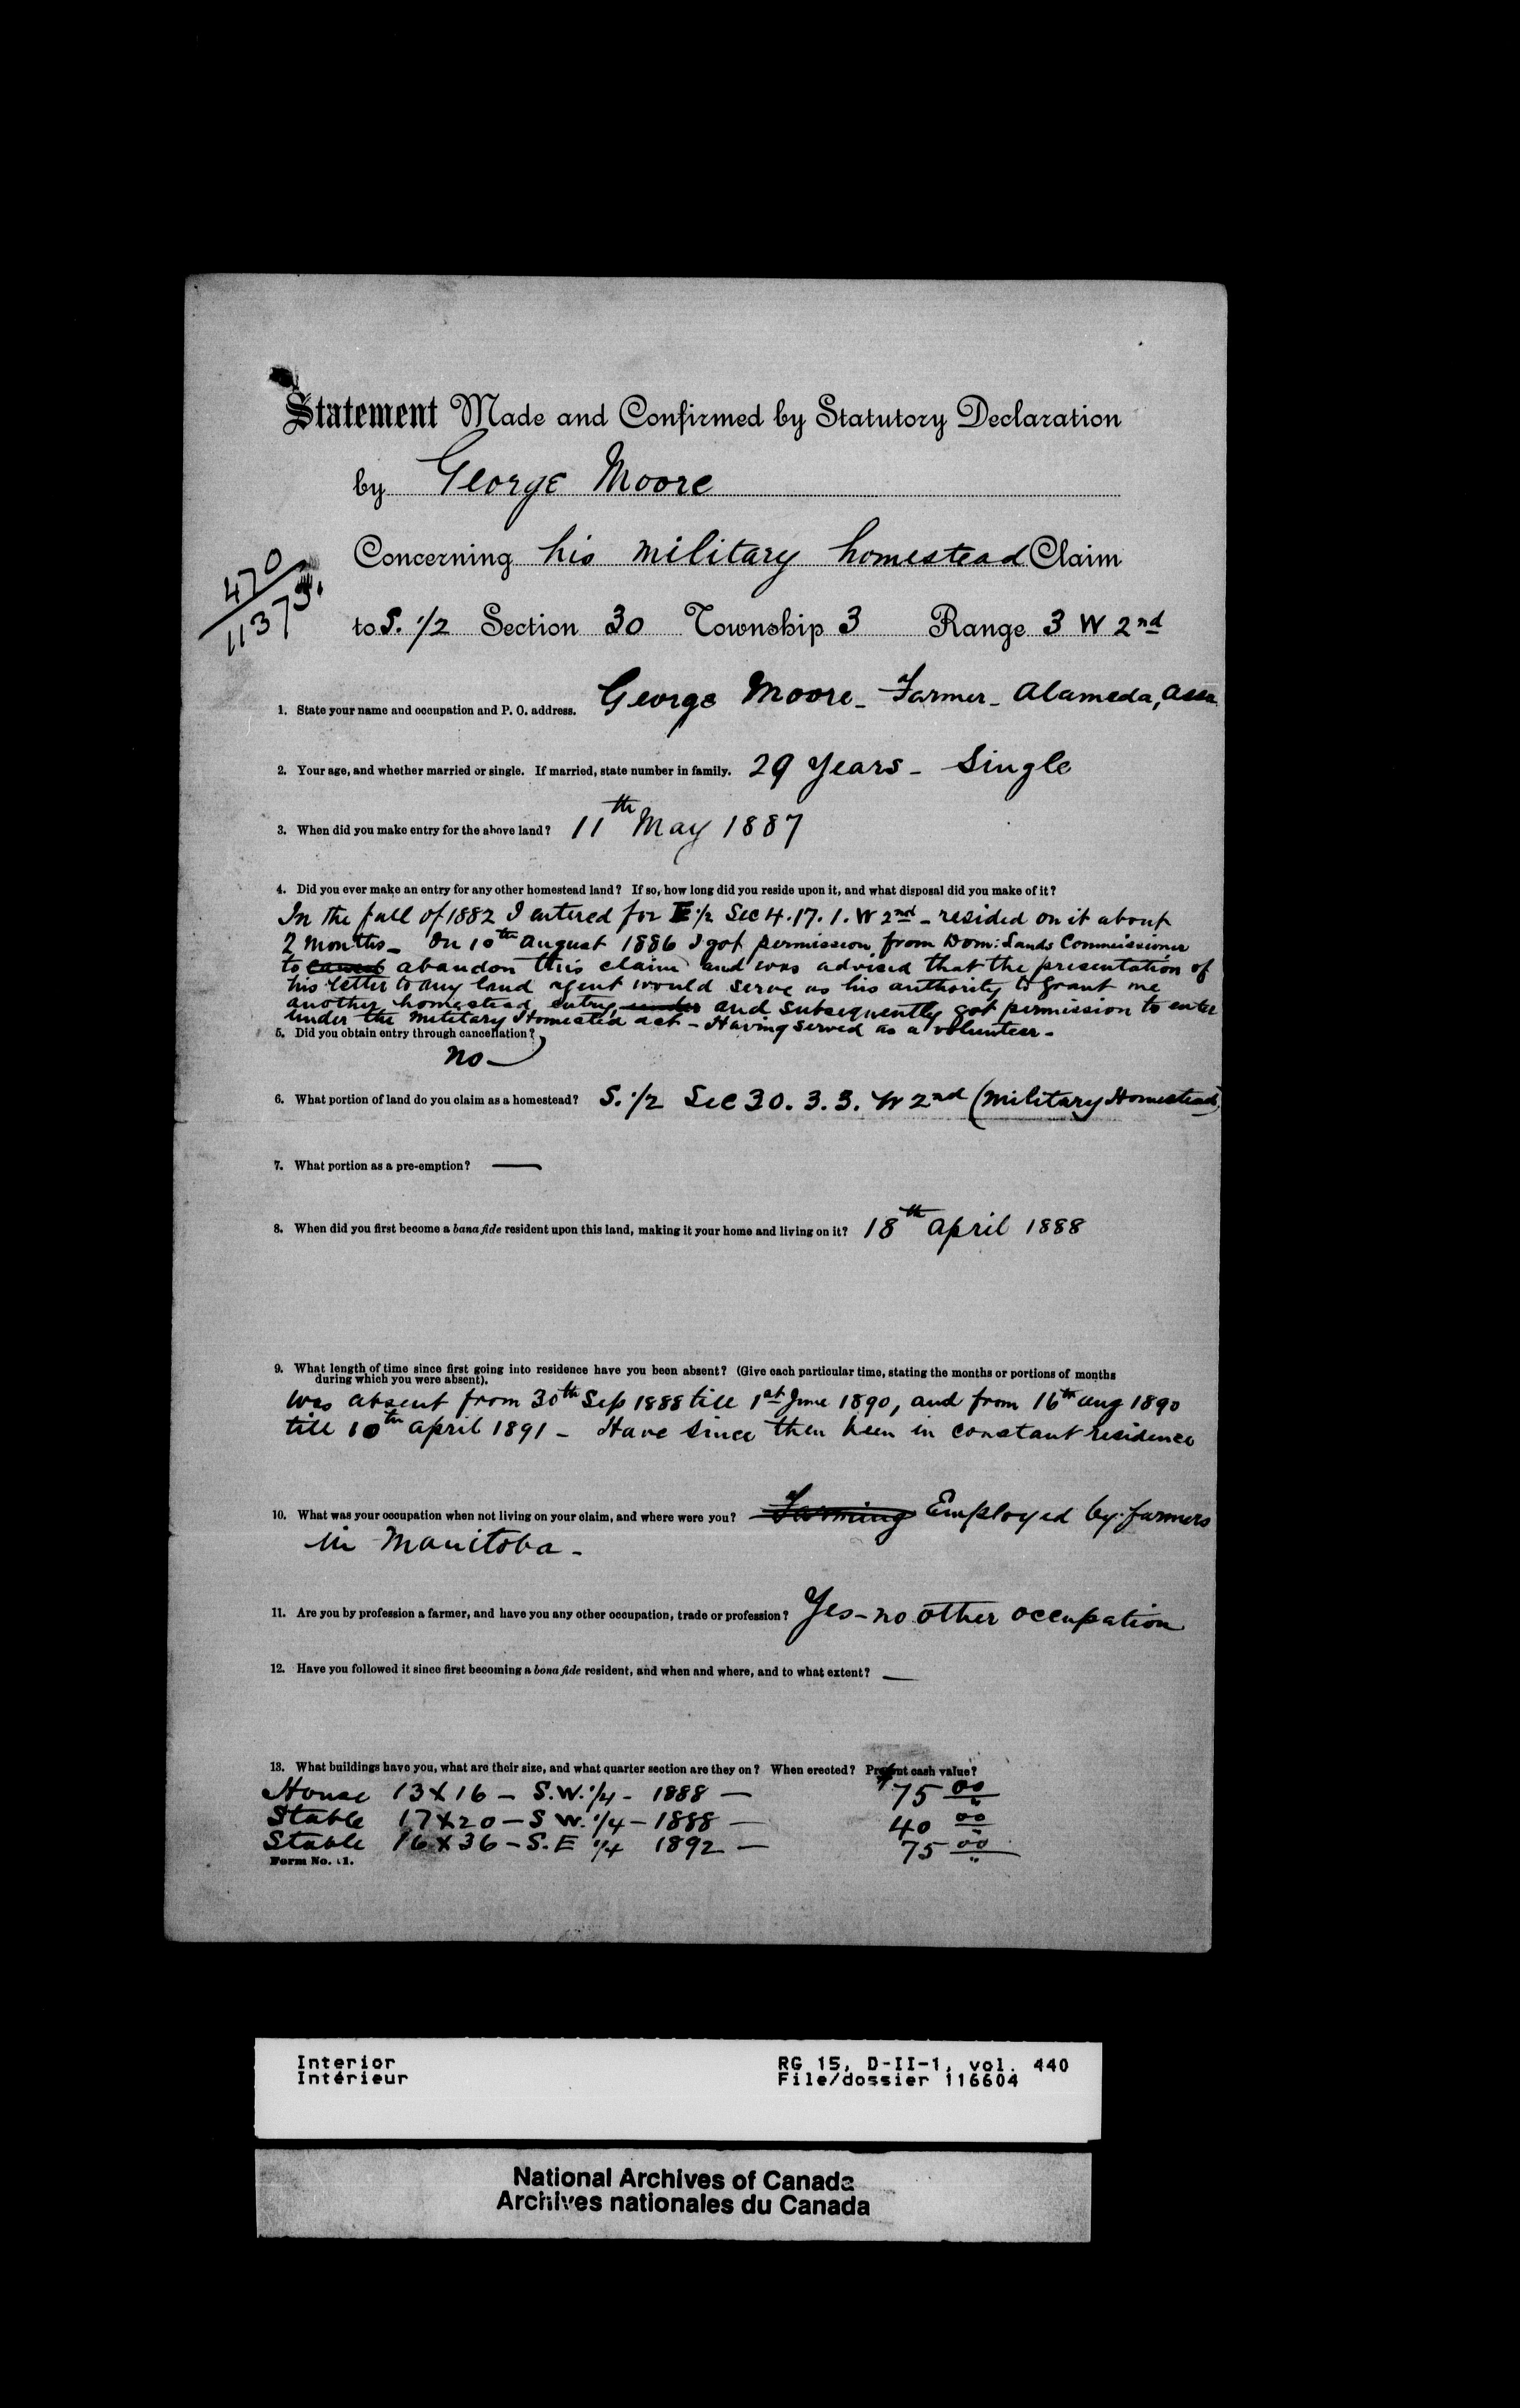 Statement Made and Confirmed by Statutory Declaration
by George Moore
Concerning his military homestead Claim
470
11373.
to S. 1/2 Section 30 Township 3 Range 3 W 2nd
1. State your name and occupation and P. O. address. George Moore - Farmer - Alameda, Assa
2. Your age, and whether married or single. If married, state number in family. 29 years - Single
3. When did you make entry for the above land? 11th May 1887
4. Did you ever make an entry for any other homestead land? If so, how long did you reside upon it, and what disposal did you make of it?
In the fall of 1882 I entered for E 1/2 Sec 4. 17. 1. W 2nd - resided on it about
2 months - On 10th August 1886 I got permission from Dom: Lands Commissioner
to cancel abandon this claim and was advised that the presentation of
his letter to any land agent would serve as his authority to grant me
another homestead entry under and subsequently got permission to enter
under the Military Homestead act - Having served as a volunteer -
5. Did you obtain entry through cancellation?
no -
6. What portion of land do you claim as a homestead? S. 1/2 Sec 30. 3. 3. W 2nd (Military Homestead)
7. What portion as a pre-emption? —
8. When did you first become a bana fide resident upon this land, making it your home and living on it? 18th April 1888
9. What length of time since first going into residence have you been absent? (Give each particular time, stating the months or portions of months
during which you were absent).
Was absent from 30th Sep 1888 till 1st June 1890, and from 16th Aug 1890
till 10th April 1891 - Have since then been in constant residence
10. What was your occupation when not living on your claim, and where were you? Farming Employed by farmers
in Manitoba -
11. Are you by profession a farmer, and have you any other occupation, trade or profession? Yes - no other occupation
12. Have you followed it since first becoming a bona fide resident, and when and where, and to what extent? —
13. What buildings have you, what are their size, and what quarter section are they on? When erected? Present cash value?
House 13 X 16 - S.W. 1/4 - 1888 — 75 00
Stable 17 X 20 - S W. 1/4 - 1888 — 40 00
Stable 16 X 36 - S. E 1/4 1892 — 75 00
Form No. 1.
Interior RG 15, D-II-1, vol. 440
Intérieur File/dossier 116604
National Archives of Canada
Archives nationales du Canada